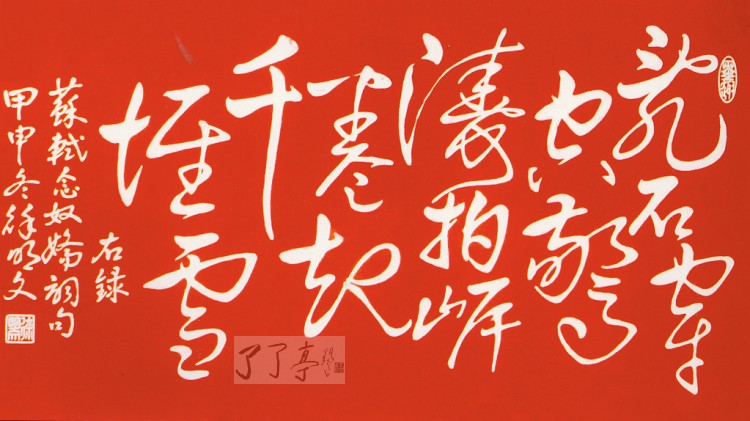 亂石穿
空驚
濤拍岸
卷起
千
堆雪
右録
蘇軾念奴嬌詞句
甲申冬徐明文
了了亭